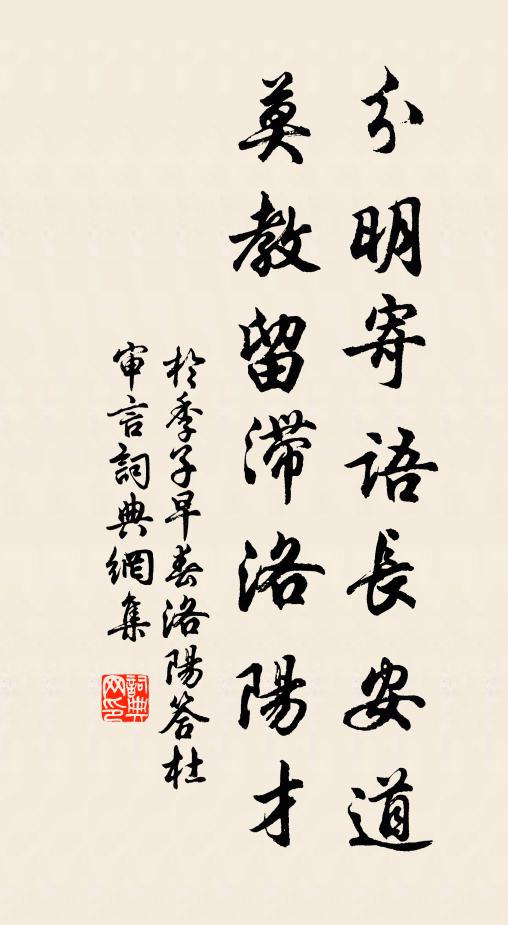 分明寄語長安道
莫教留滯洛陽才
於季子早春洛陽答杜
審言詞典網集
詞典网印